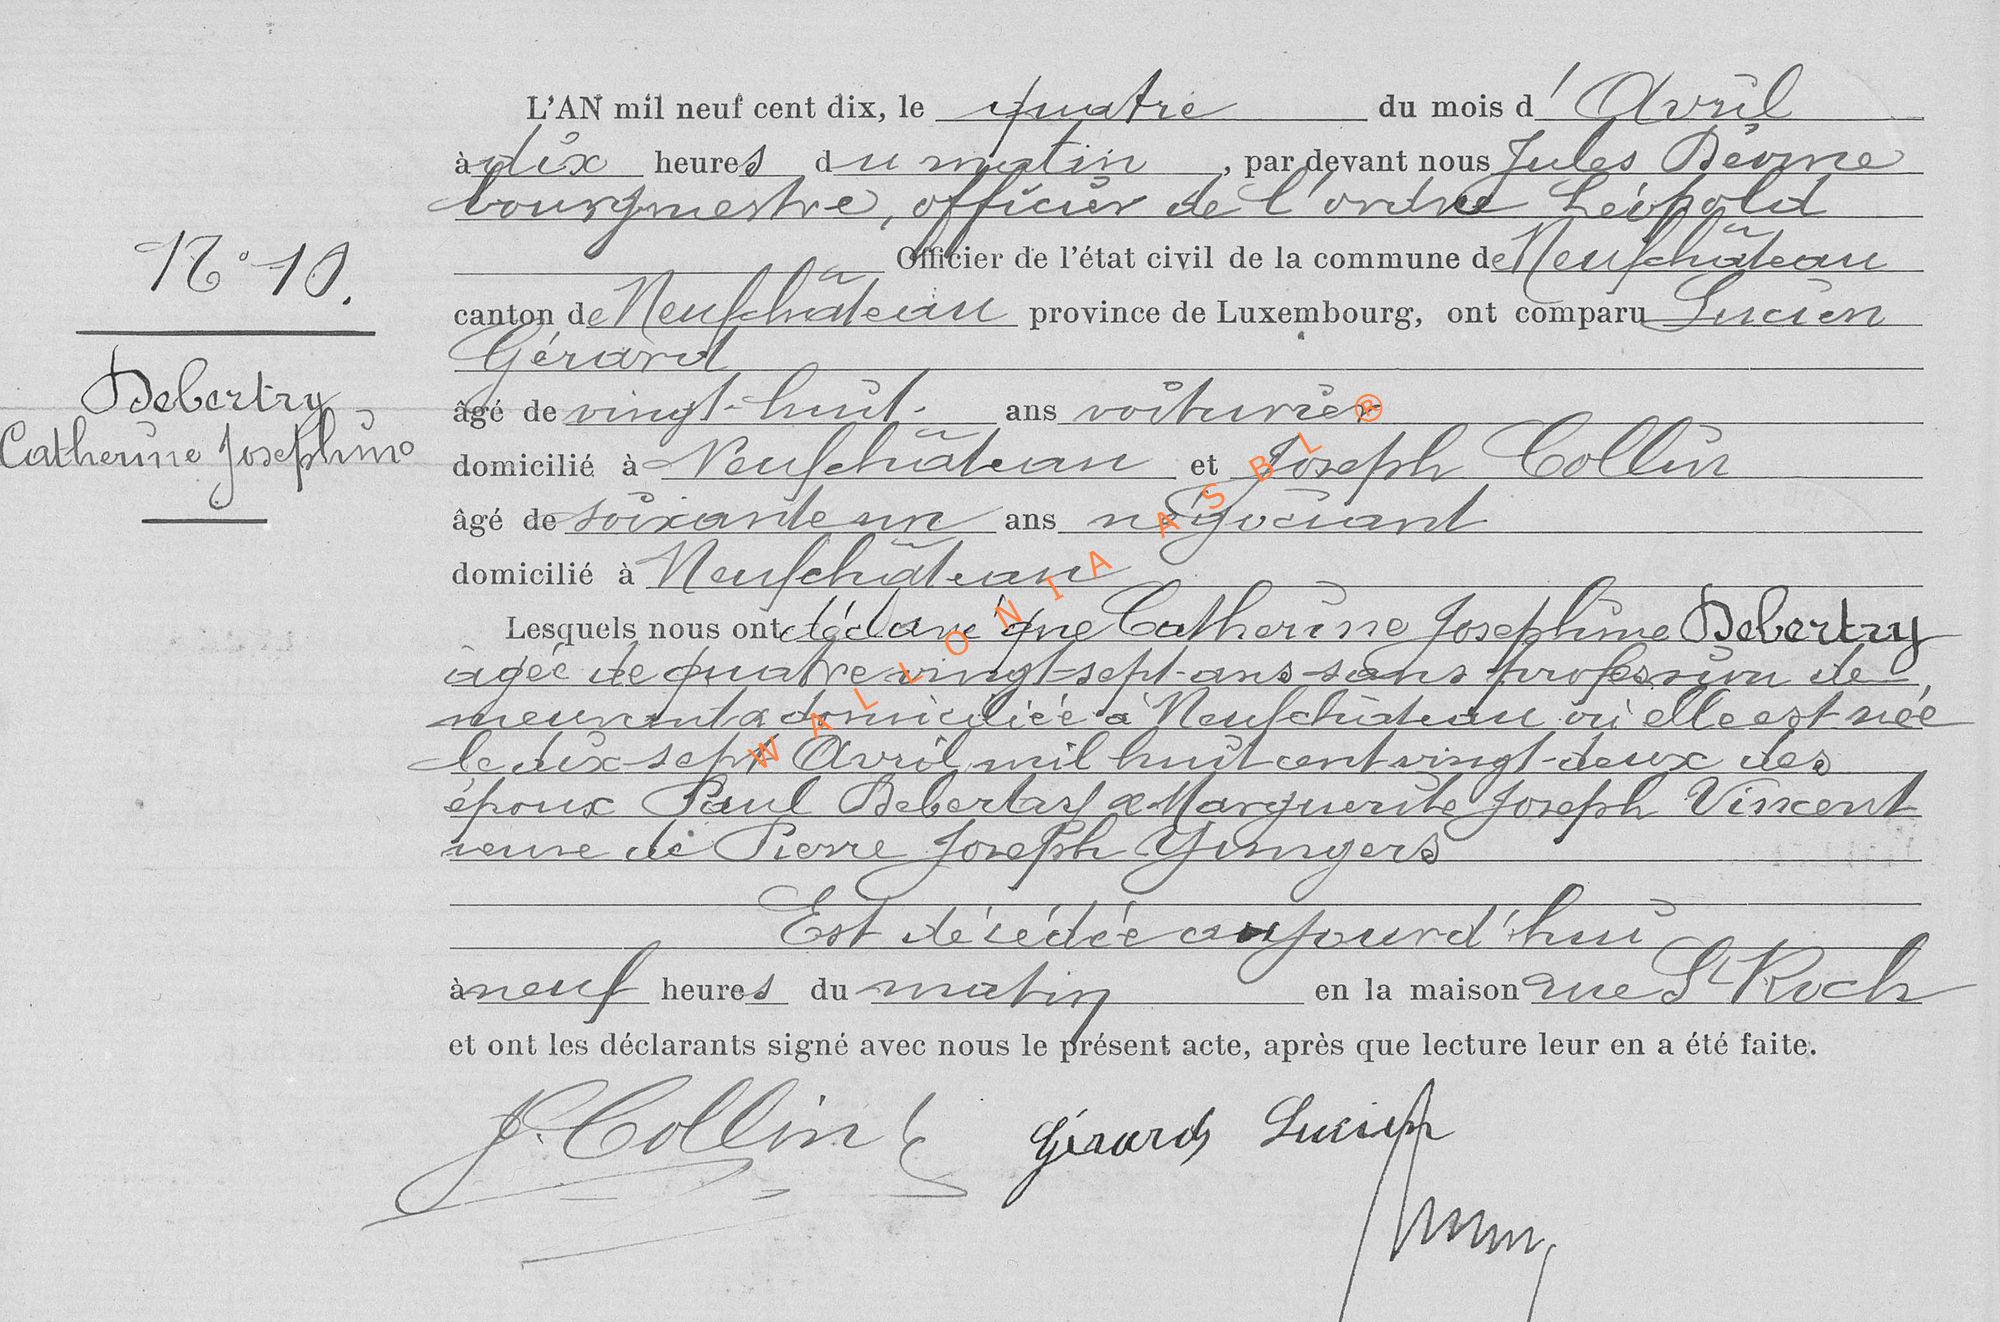 L'AN mil neuf cent dix, le quatre du mois d'Avril
à dix heures du matin, par devant nous Jules
bourgmestre, officier de l'ordre Léopold
Officier de l'état civil de la commune de Neufchâteau
canton de Neufchâteau province de Luxembourg, ont comparu Lucien
Gérard
âgé de vingt-huit ans voiturier
domicilié à Neufchâteau et Joseph Collin
âgé de soixante un ans négociant
domicilié à Neufchâteau
Lesquels nous ont déclaré que Catherine Joséphine Debertry
âgée de quatre vingt-sept ans sans profession de
meurant & domiciliée à Neufchâteau où elle est née
le dix-sept Avril mil huit cent vingt-deux des
époux Paul Debertry & Marguerite Joseph Vincent
veuve de Pierre Joseph
Est décédée aujourd'hui
à neuf heures du matin en la maison rue St Roch
et ont les déclarants signé avec nous le présent acte, après que lecture leur en a été faite.
J. Collin Gérard Lucien
N° 10.
Debertry
Catherine Joséphine
WALLONIA ASBL ®